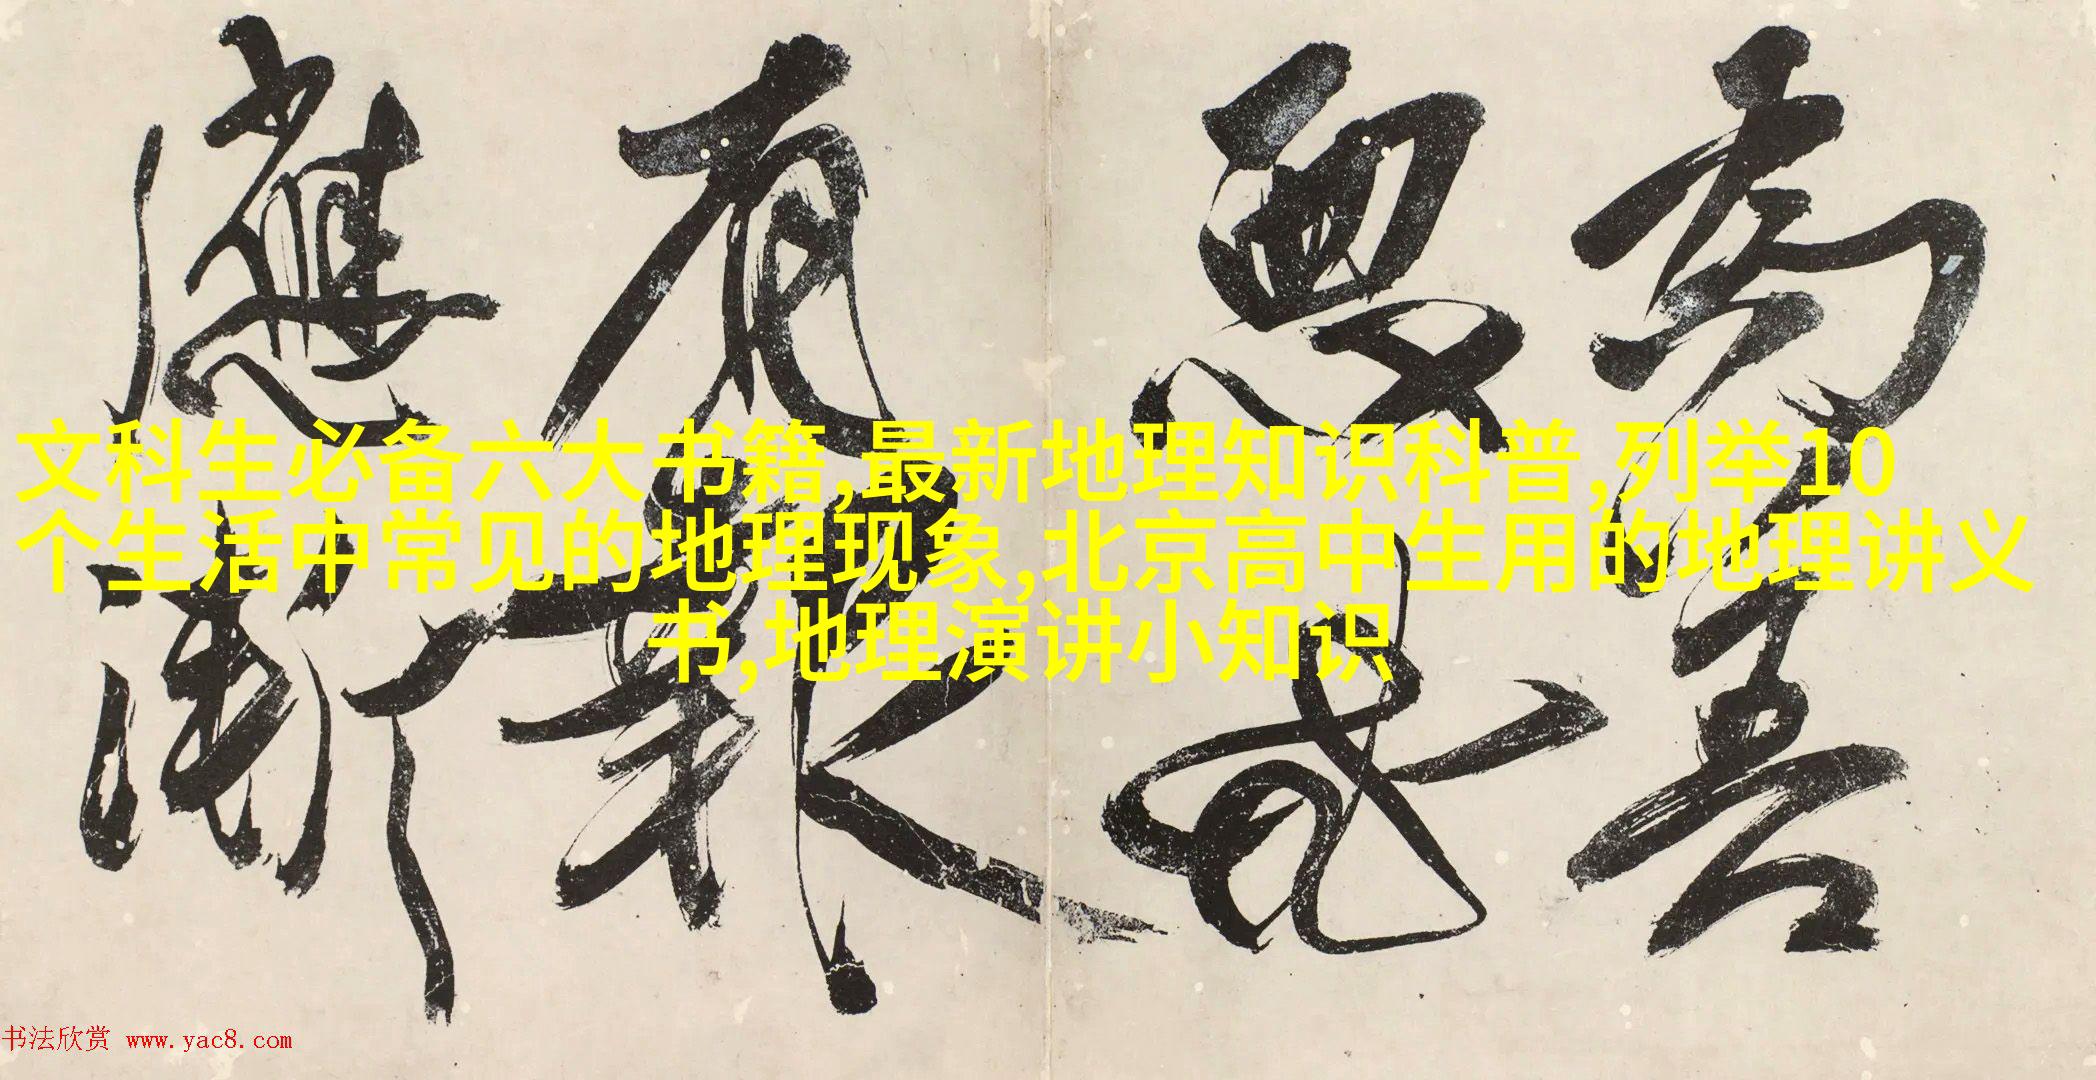 為善
惡
有報
應漸
文科生必备六大书籍,最新地理知识科普,列举10
个生活中常见的地理现象,北京高中生用的地理讲义
书,地理演讲小知识
书法欣赏 www.yac8.com